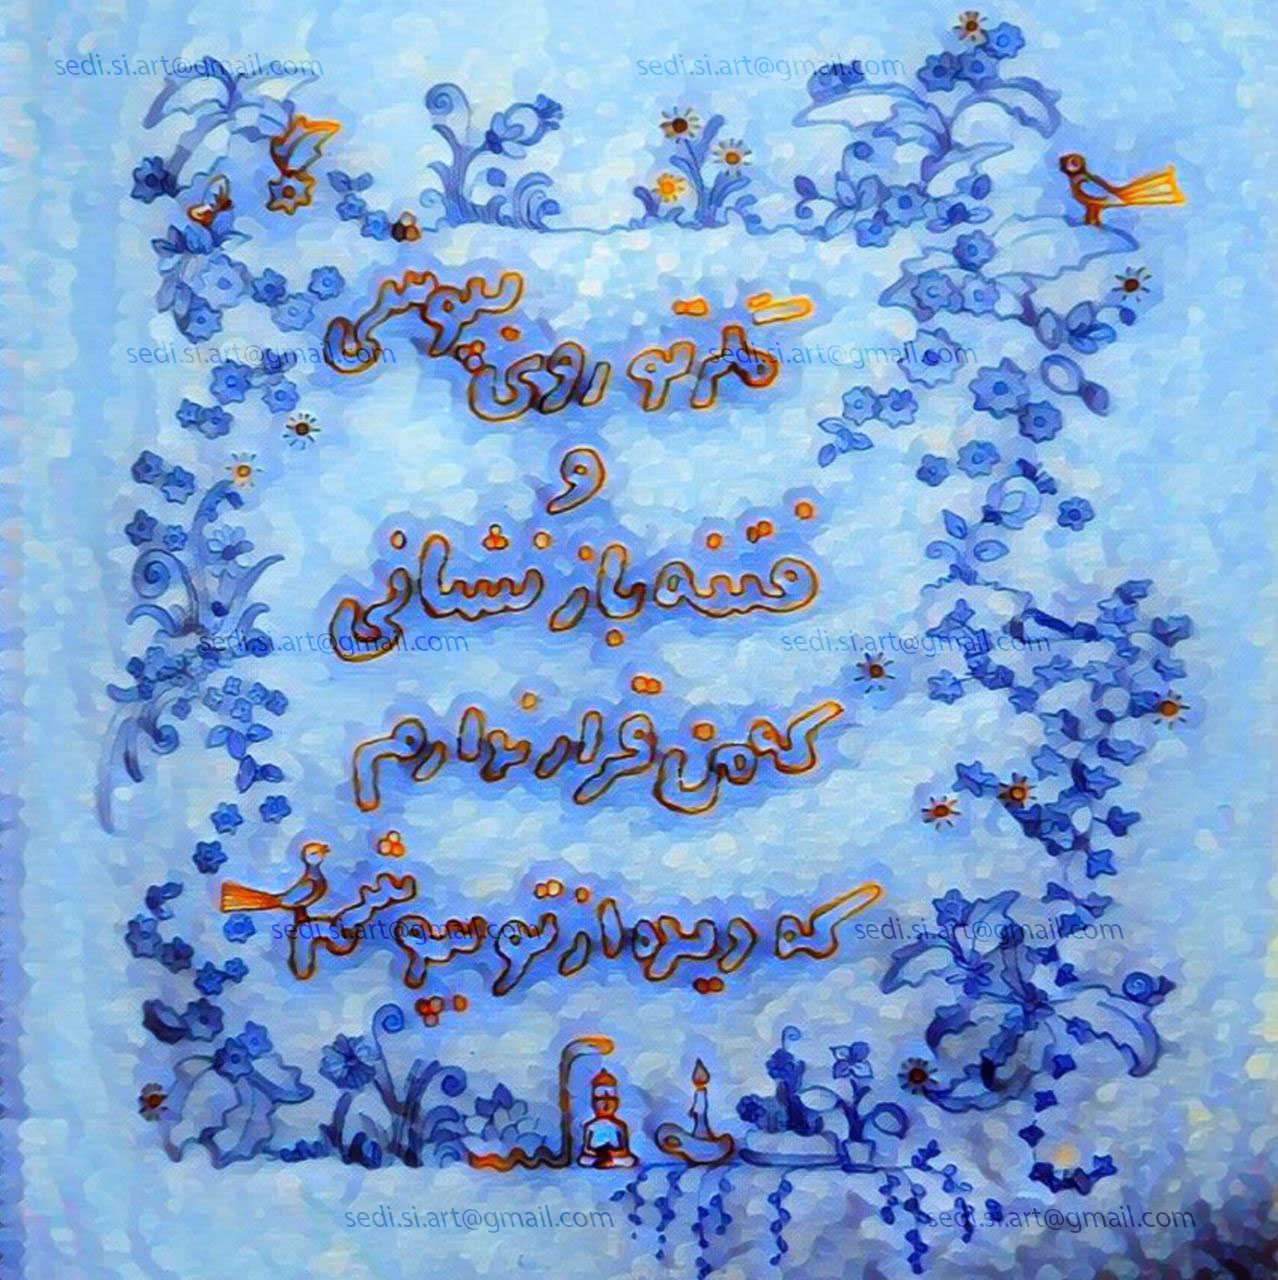 sedi.si.art@gmail.com sedi.si.art@gmail.com
مگر تو روی بپوشی
sedi.si.art@gmail.com sedi.si.art@gmail.com
و
فتنه باز نشانی
sedi.si.art@gmail.com sedi.si.art@gmail.com
که من قرار ندارم
که دیده از تو بپوشم
sedi.si.art@gmail.com sedi.si.art@gmail.com
sedi.si.art@gmail.com sedi.si.art@gmail.com